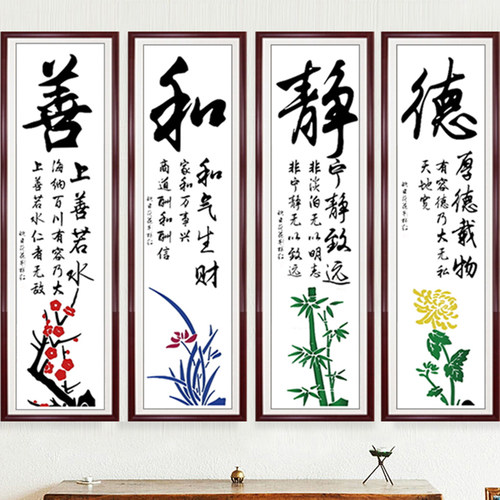 善
上善若水
海纳百川有容乃大
上善若水仁者无敌
和
和气生财
家和万事兴
商道酬和酬信
静
宁静致远
非淡泊无以明志
非宁静无以致远
德
厚德载物
有容德乃大无私
天地宽